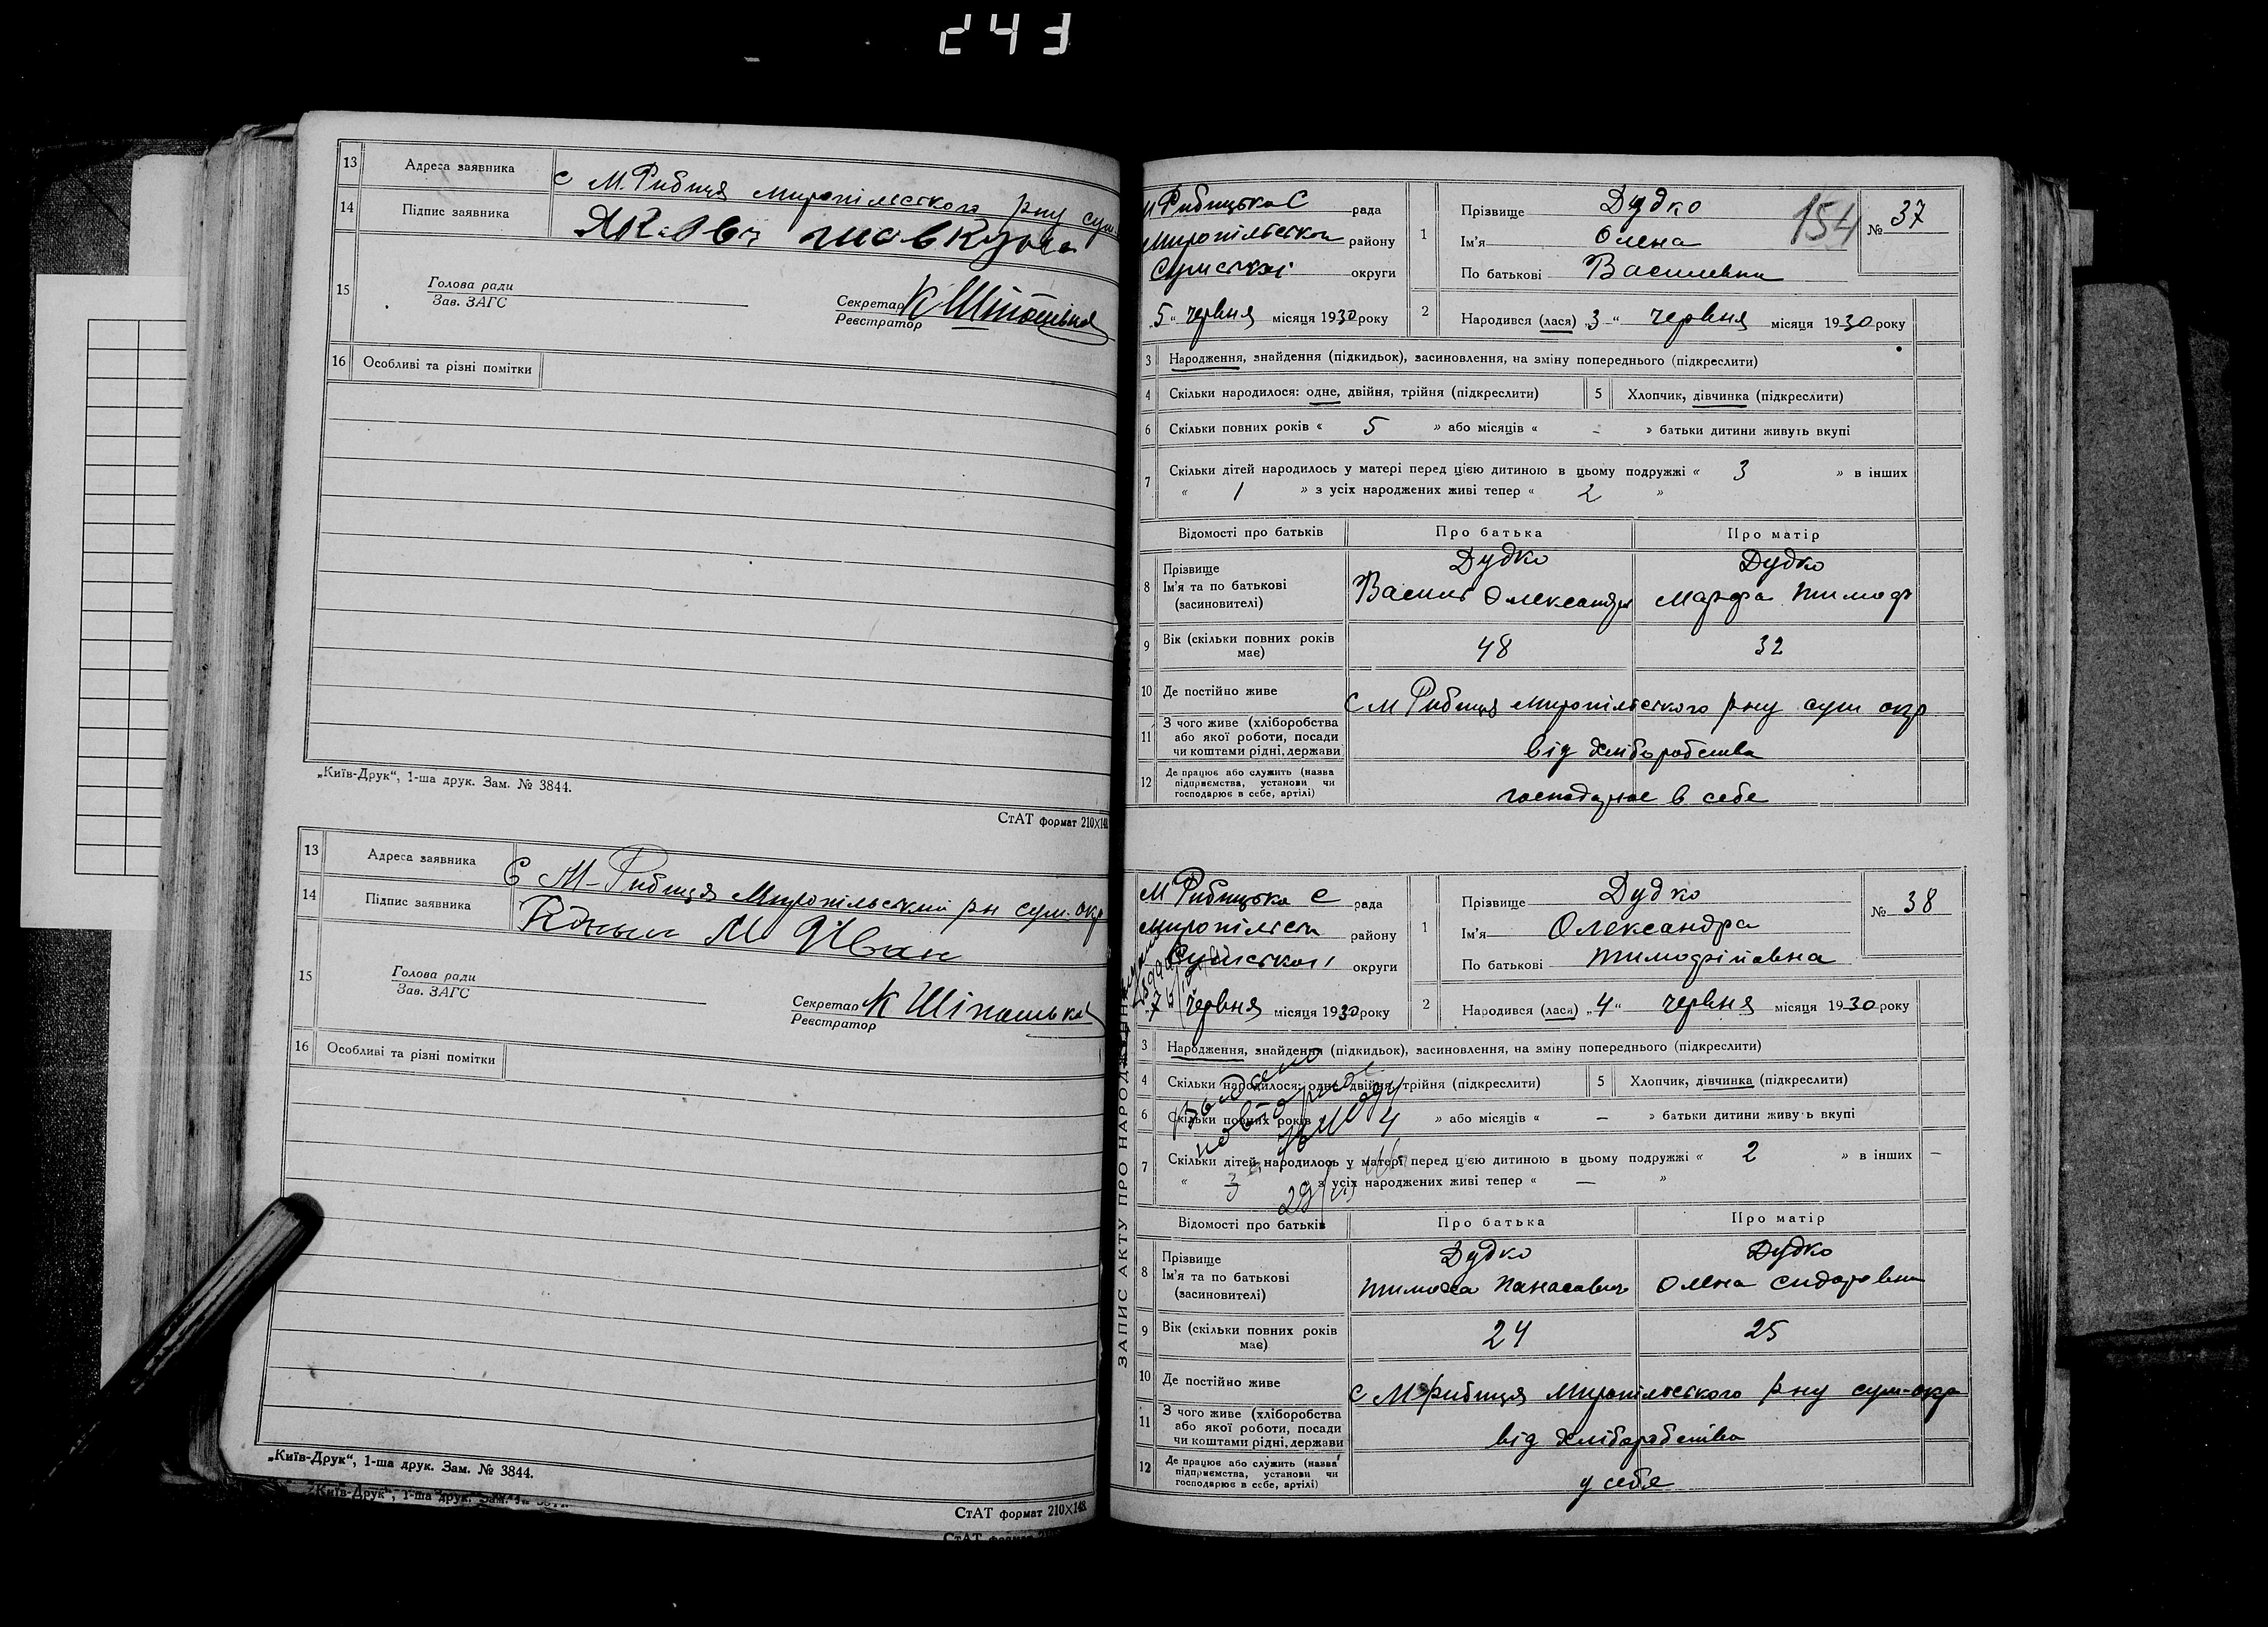 243
13 Адреса заявника с М. Рибиця миропільського рну сум
14 Підпис заявника
15 Голова ради
Зав. ЗАГС
Секретар К Шіпошька
Реєстратор
16 Особливі та різні помітки
„Київ-Друк“, 1-ша друк. Зам. № 3844.
СтАТ формат 210×148
13 Адреса заявника С М-Рибиця Миропільський рн сум. окр
14 Підпис заявника М Йван
15 Голова ради
Зав. ЗАГС
Секретар К Шіпошька
Реєстратор
16 Особливі та різні помітки
„Київ-Друк“, 1-ша друк. Зам. № 3844.
СтАТ формат 210×148
„Київ-Друк“, 1-ша друк. Зам.
СтАТ формат
154
М Рибицька С рада
Миропільськ району
Сумської округи
„5“ червня місяця 1930 року
1 Прізвище Дудко
Ім'я Олена
По батькові Василевна
№ 37
2 Народився (лася) „3“ червня місяця 1930 року
3 Народження, знайдення (підкидьок), засиновлення, на зміну попереднього (підкреслити)
4 Скільки народилося: одне, двійня, трійня (підкреслити) 5 Хлопчик, дівчинка (підкреслити)
6 Скільки повних років « 5 » або місяців « - » батьки дитини живуть вкупі
7 Скільки дітей народилось у матері перед цією дитиною в цьому подружжі « 3 » в інших
« 1 » з усіх народжених живі тепер « 2 »
Відомості про батьків Про батька Про матір
8 Прізвище Дудко Дудко
Ім'я та по батькові Василь Олександр Марфа Тимоф
(засиновителі)
9 Вік (скільки повних років має) 48 32
10 Де постійно живе С М Рибиця Миропільського рну сум окр
11 З чого живе (хліборобства
або якої роботи, посади
чи коштами рідні, держави від хліборобства
12 Де працює або служить (назва
підприємства, установи чи
господарює в себе, артілі) господарює в себе
ЗАПИС АКТУ ПРО НАРОДЖЕННЯ
М Рибицька С рада
Миропільськ району
Сумської округи
„7“ червня місяця 1930 року
1 Прізвище Дудко
Ім'я Олександра
По батькові Тимофіївна
№ 38
2 Народився (лася) „4“ червня місяця 1930 року
3 Народження, знайдення (підкидьок), засиновлення, на зміну попереднього (підкреслити)
4 Скільки народилося: одне, двійня, трійня (підкреслити) 5 Хлопчик, дівчинка (підкреслити)
6 Скільки повних років 4 » або місяців « — » батьки дитини живуть вкупі
7 Скільки дітей народилось у матері перед цією дитиною в цьому подружжі « 2 » в інших —
« 3 » з усіх народжених живі тепер « — »
Відомості про батьків Про батька Про матір
8 Прізвище Дудко Дудко
Ім'я та по батькові Тимоха Панасович Олена Сидоровна
(засиновителі)
9 Вік (скільки повних років має) 24 25
10 Де постійно живе С М Рибиця Миропільського рну сум-окр
11 З чого живе (хліборобства
або якої роботи, посади
чи коштами рідні, держави від хліборобства
12 Де працює або служить (назва
підприємства, установи чи
господарює в себе, артілі) у себе